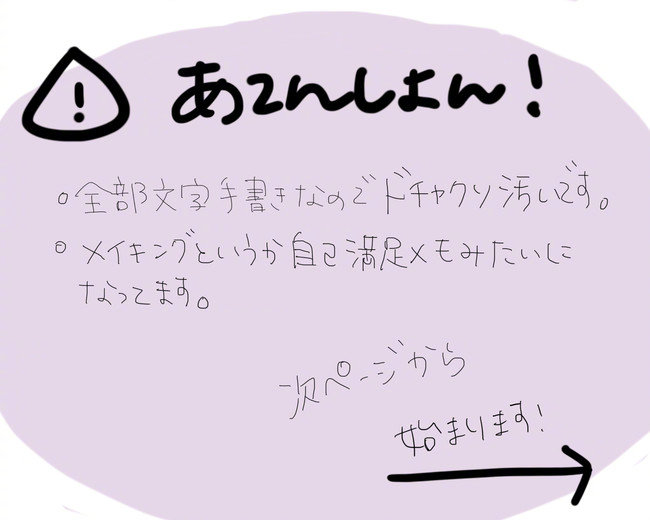 ! あてんしょん!
。全部文字手書きなのでドチャクソ汚いです。
。メイキングというか自己満足メモみたいに
なってます。
次ページから
始まります!